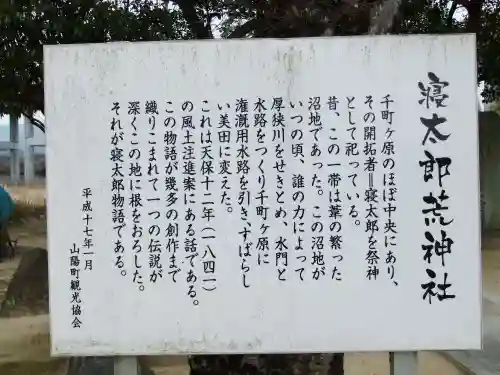 寝太郎荒神社
千町ヶ原のほぼ中央にあり、
その開拓者＝寝太郎を祭神
として祀っている。
昔、この一帯は葦の繁った
沼地であった。この沼地が
いつの頃、誰の力によって
厚狭川をせきとめ、水門と
水路をつくり千町ヶ原に
潅漑用水路を引き、すばらし
い美田に変えた。
これは天保十二年（一八四一）
の風土注進案にある話である。
この物語が幾多の創作まで
織りこまれて一つの伝説が
深くこの地に根をおろした。
それが寝太郎物語である。
平成十七年一月
山陽町観光協会